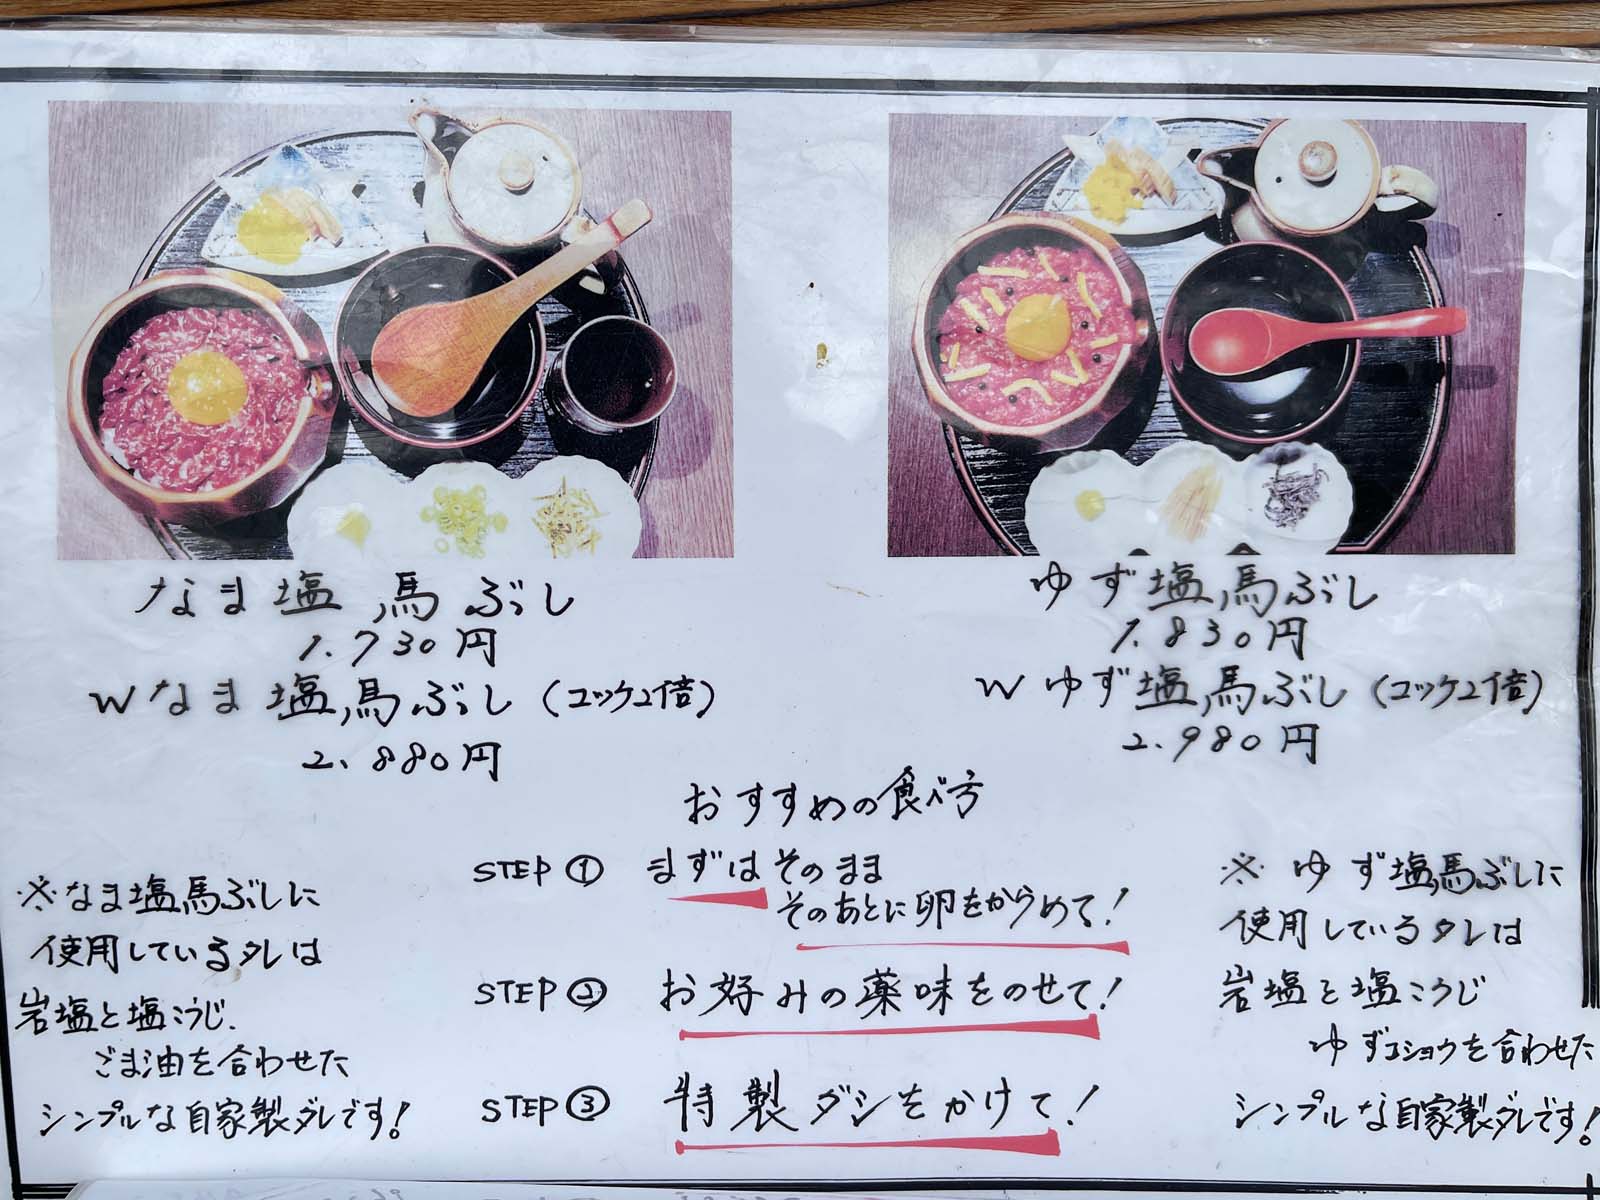 なま塩馬ぶし
1.730円
Wなま塩馬ぶし(ユッケ2倍)
2.880円
ゆず塩馬ぶし
1.830円
Wゆず塩馬ぶし(ユッケ2倍)
2.980円
おすすめの食べ方
STEP① まずはそのまま
そのあとに卵をからめて!
STEP② お好みの薬味をのせて!
STEP③ 特製ダシをかけて!
※なま塩馬ぶしに
使用しているタレは
岩塩と塩こうじ.
ごま油を合わせた
シンプルな自家製ダレです!
※ゆず塩馬ぶしに
使用しているタレは
岩塩と塩こうじ
ゆずコショウを合わせた
シンプルな自家製ダレです!